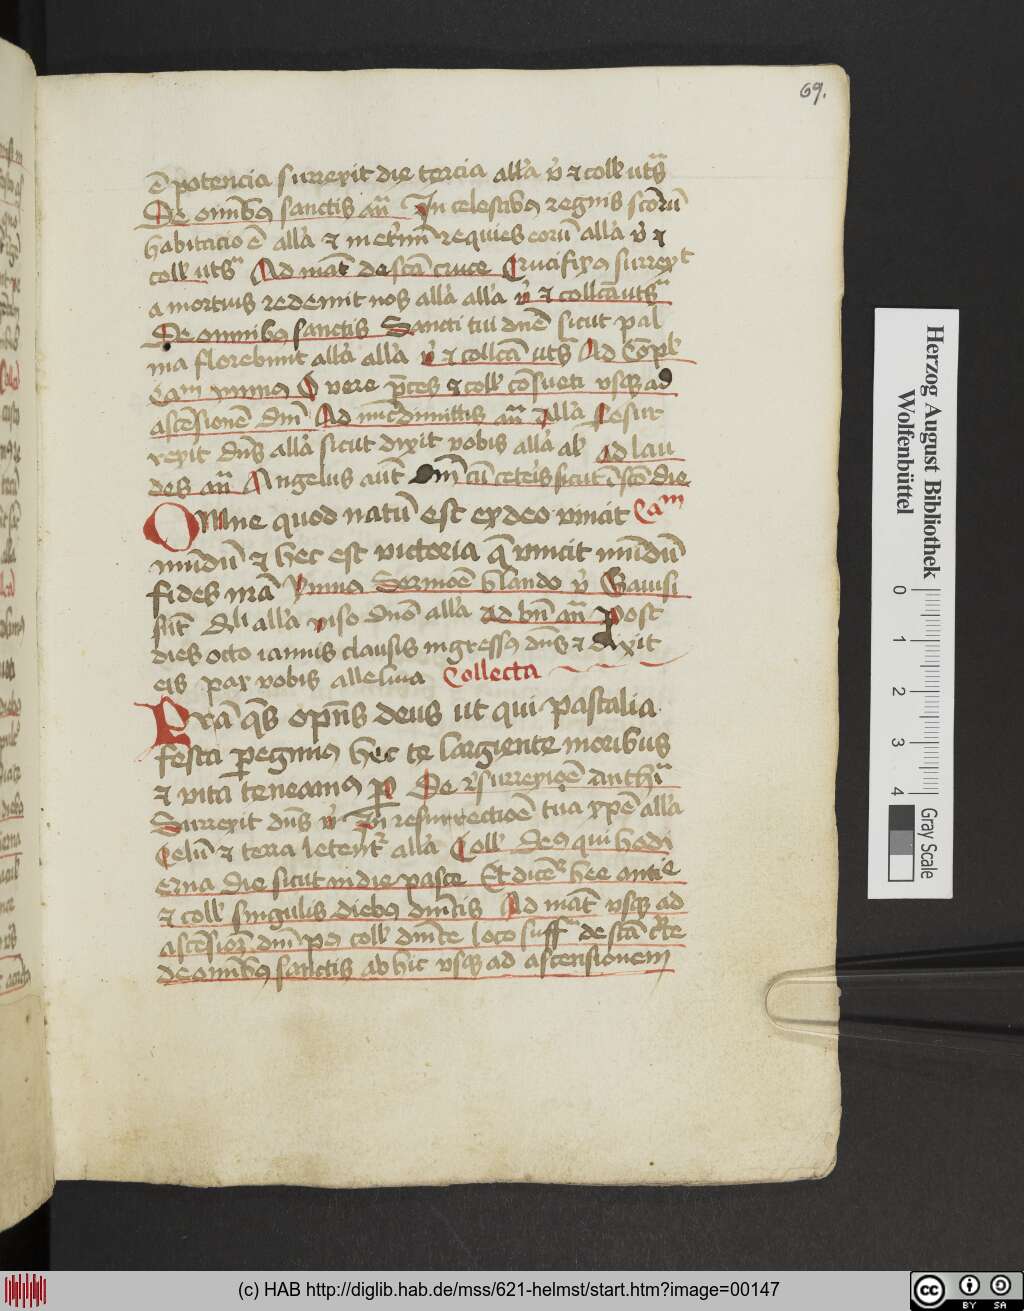 69.
ē potencia surrexit die tercia all'a v̉ ⁊ coll' utˢ
De omībꝯ sanctis añ In celestibꝯ regnis scōrū
habitacio ē all'a ⁊ in etˀnū requies eorū all'a v̉ ⁊
coll' utˢ Ad mat̄ de scā cruce Crucifixꝯ surrexit
a mortuis redemit nos all'a all'a v̉ ⁊ collcā utˢ
De omnibꝯ sanctis Sancti tui dnē sicut pal
ma florebunt all'a all'a v̉ ⁊ collcā utˢ Ad Cōpl'
vere p̄ces ⁊ coll' cōsueti vsqꝫ ad
ascēsionē dnī Ad nūcdimittis añ All'a Resur
rexit dn̄s all'a sicut dixit vobis all'a al' ad lau
des añ Angelus aūt Dnī cū ceteris sicut ī scō die
Omne quod natū est ex deo vincit Caᵐ
mūdū ⁊ hec est victoria q̄ vincit mūdū
fides nrā Ymnꝯ Sermōe blando v̉ Gauisi
sūt dˡi all'a viso dnō all'a ad bn̄ añ Post
dies octo ianuis clausis ingressꝯ dn̄s ⁊ dixit
eis pax vobis alleluia Collecta
Prā q̄s opn̄s deus ut qui pascalia
festa peregimꝯ hec te largiente moribus
⁊ vita teneamꝯ p De rˀsurrexiōe antha
Surrexit dn̄s v̉ In resurrectiōe tua xpē all'a
Celū ⁊ terra letentˀ all'a Coll' Deꝯ qui hodi
erna die sicut in die pasce Et dicetˀ hec antie
⁊ coll' singulis diebꝯ dnīcis Ad mat̄ vsqꝫ ad
ascēsionē dnī pꝯ coll' dnīce loco suff' de scā crͨe
de omībꝯ sanctis ab hic vsqꝫ ad ascensionem
Herzog August Bibliothek
Wolfenbüttel
0 1 2 3 4
Gray Scale
(c) HAB http://diglib.hab.de/mss/621-helmst/start.htm?image=00147
cc BY SA